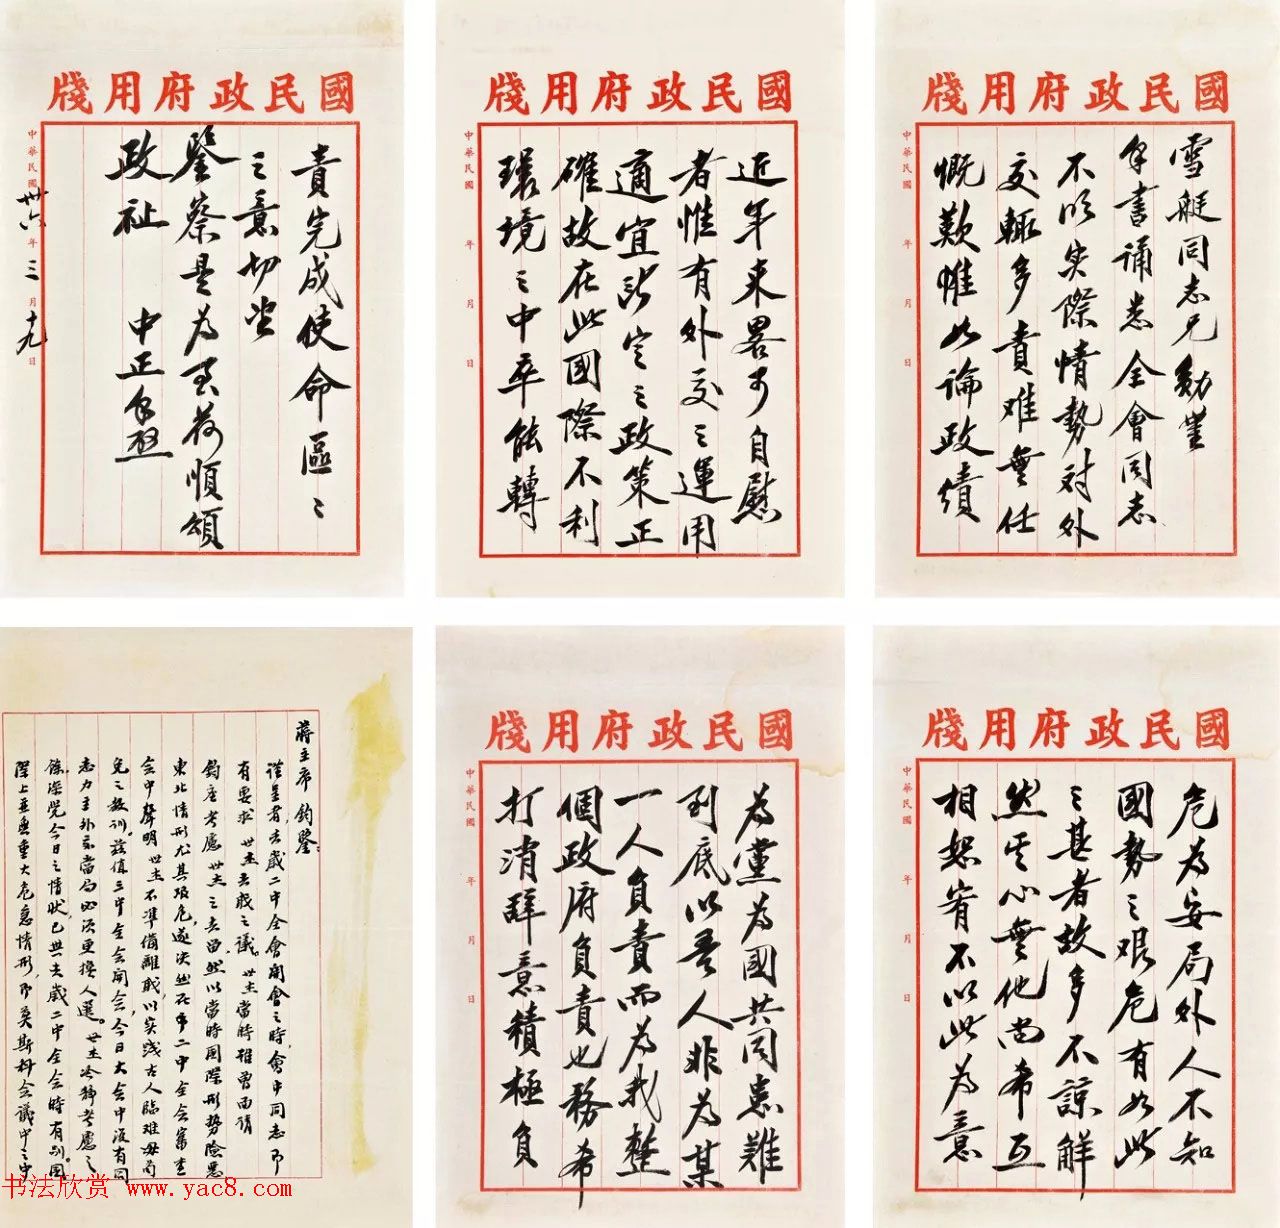 國民政府用牋
雪艇同志兄勛鑒
手書誦悉全會同志
不明實際情勢对外
交輒多責难無任
慨歎惟如論政績
中華民國 年 月 日
國民政府用牋
近年來畧可自慰
者惟有外交之運用
適宜所定之政策正
確故在此國際不利
環境之中卒能轉
中華民國 年 月 日
國民政府用牋
危為安局外人不知
國勢之艰危有如此
之甚者故多不諒解
然其心無他尚希互
相恕宥不以此為意
中華民國 年 月 日
國民政府用牋
為黨為國共同患難
到底以吾人非為某
一人負責而為我整
個政府負責也務希
打消辞意積極負
中華民國 年 月 日
國民政府用牋
責完成使命區之
之意切盼
鑒察是為至荷順頌
政祉 中正手啟
中華民國卅六年三月十九日
蔣主席鈞鑒
謹呈者去歲二中全會開會之時會中同志即
有要求世杰去職之議世杰當時確曾面請
鈞座考慮世杰之去留然以當時国際形势險惡
東北情形尤其艰危遂决然在第二中全会審查
会中聲明世杰不準備離職以实践古人臨难毋苟
免之教训兹值三中全会開会今日大会中復有同
志力主外交當局必须更换人選世杰冷静考慮之
餘深覺今日之情狀已與去歲二中全会時有别国
際上並無重大危急情形即莫斯科会議中之中
书法欣赏 www.yac8.com